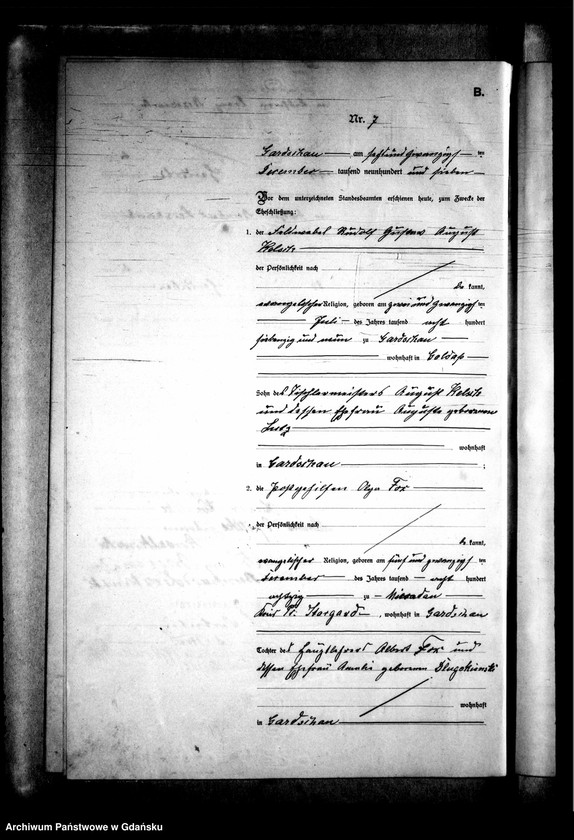 B.
Nr. 7
Gardschau am sechsundzwanzigsten
Dezember tausend neunhundert und sieben
Vor dem unterzeichneten Standesbeamten erschienen heute, zum Zwecke der
Eheschließung:
1. der Feldwebel Rudolf Gustav August
der Persönlichkeit nach
be kannt,
evangelischer Religion, geboren am zwei und zwanzigsten
Juli des Jahres tausend acht hundert
siebenzig und neun zu Gardschau
wohnhaft in Goldap
Sohn des Tischlermeisters August
und dessen Ehefrau Auguste geborenen
wohnhaft
in Gardschau ;
2. die Postgehilfin Olga Fox
der Persönlichkeit nach
be kannt,
evangelischer Religion, geboren am fünf und zwanzigsten
Dezember des Jahres tausend acht hundert
achtzig zu
Kreis Pr. Stargard, wohnhaft in Gardschau
Tochter des Hauptlehrers Albert Fox und
dessen Ehefrau geborenen
wohnhaft
in Gardschau
Archiwum Państwowe w Gdańsku